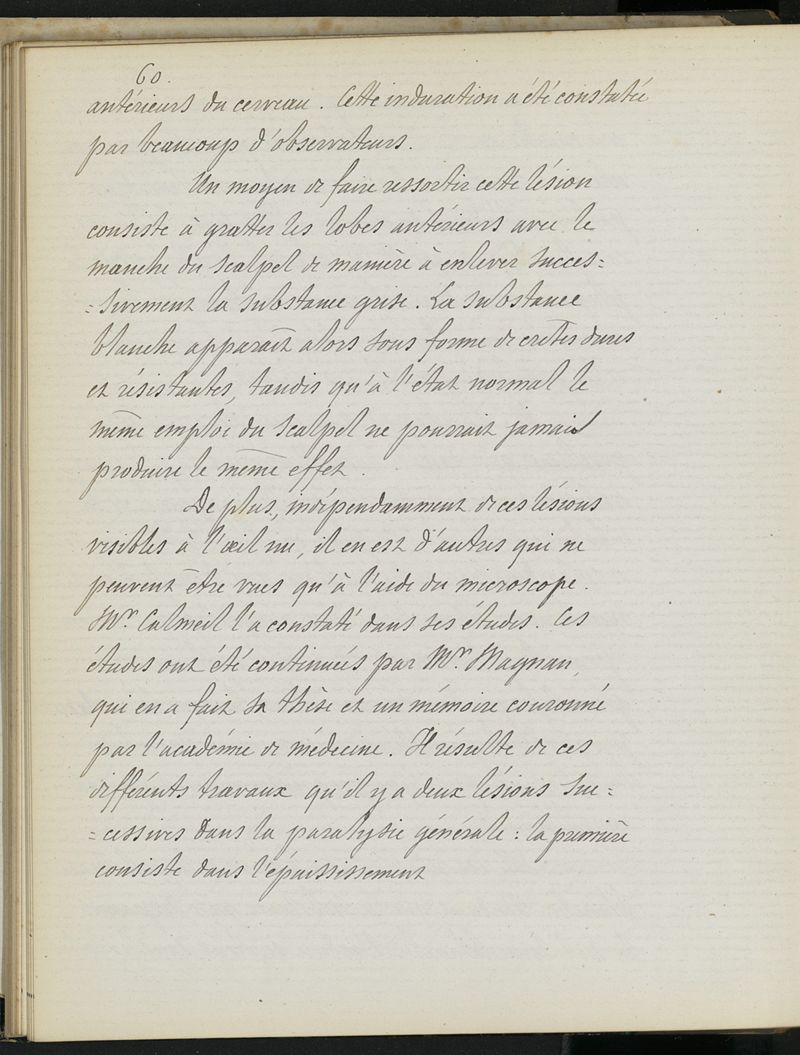 60.
antérieurs du cerveau. Cette induration a été constatée
par beaucoup d'observateurs.
Un moyen de faire ressortir cette lésion
consiste à gratter les lobes antérieurs avec le
manche du scalpel de manière à enlever succes=
=sivement la substance grise. La substance
blanche apparaît alors sous forme de crêtes dures
et résistantes, tandis qu'à l'état normal le
même emploi du scalpel ne pourrait jamais
produire le même effet.
De plus, indépendamment de ces lésions
visibles à l'œil nu, il en est d'autres qui ne
peuvent être vues qu'à l'aide du microscope.
Mr. Calmeil l'a constaté dans ses études. Ces
études ont été continuées par Mr. Magnan,
qui en a fait sa thèse et un mémoire couronné
par l'académie de médecine. Il résulte de ces
différents travaux qu'il y a deux lésions suc=
=cessives dans la paralysie générale : la première
consiste dans l'épaississement